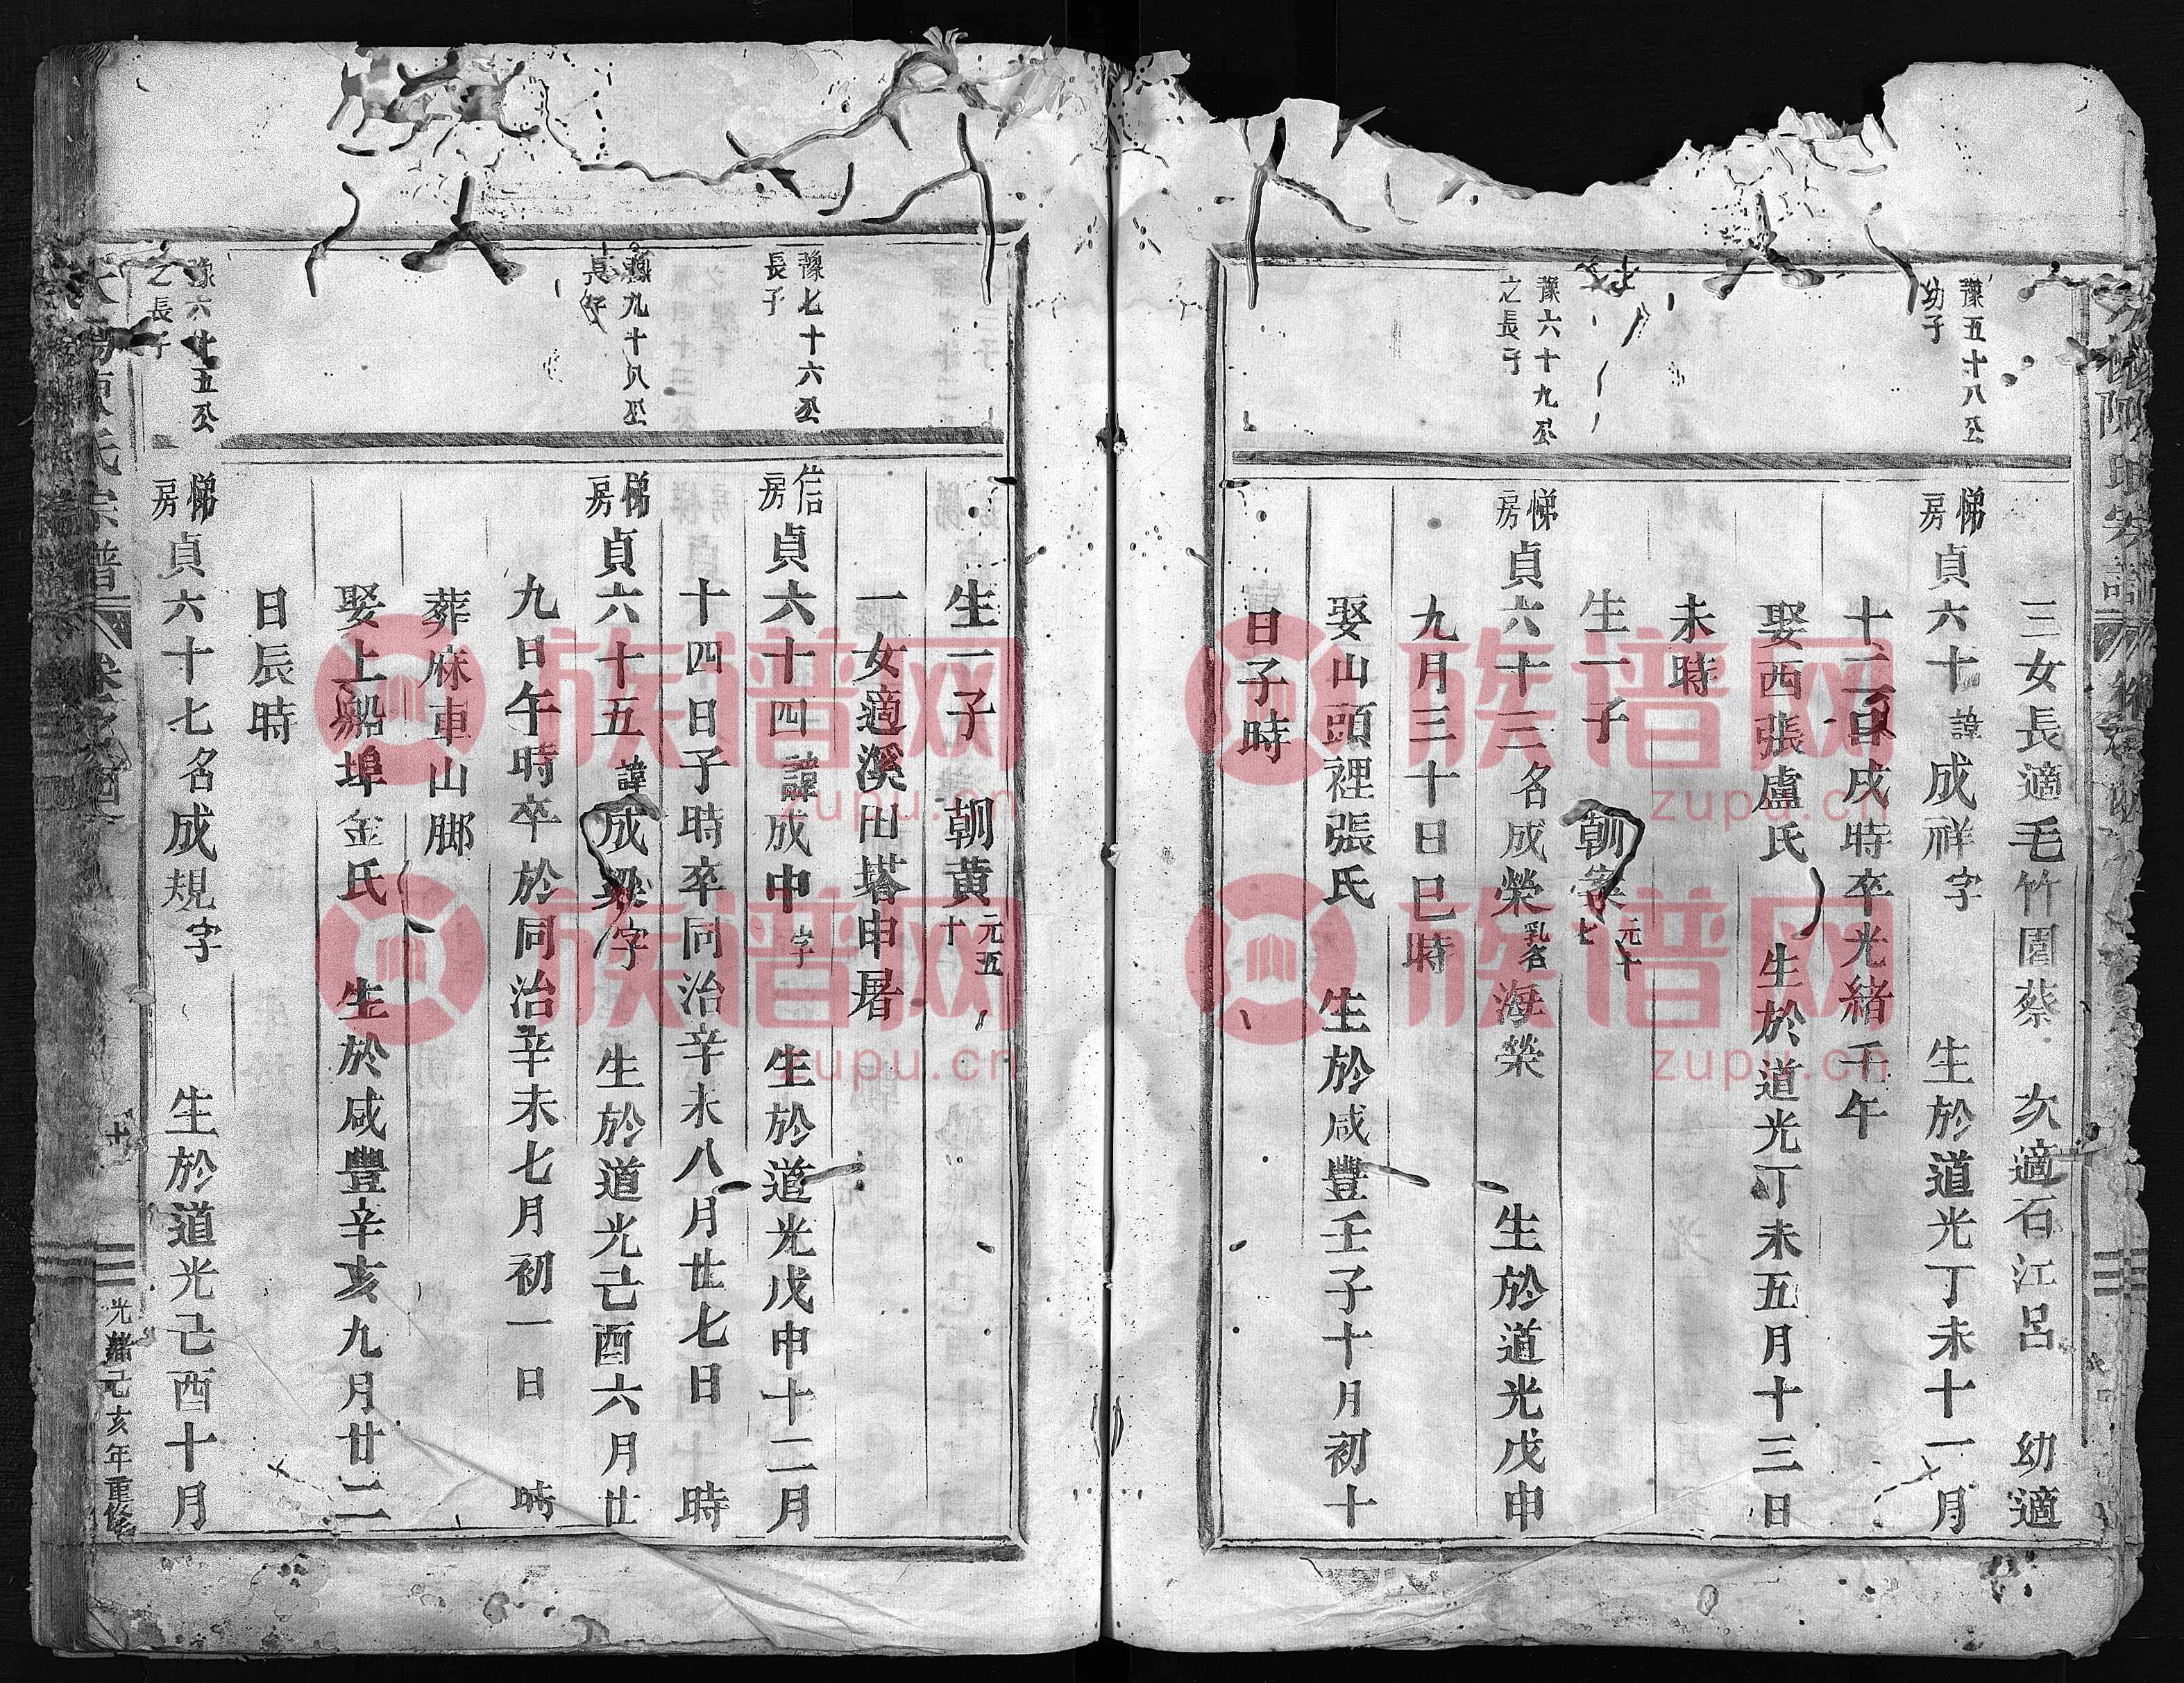 三女長適毛竹園蔡 次適石江呂 幼適
豫五十八公
幼子
悌房 貞六十 諱成祥字 生於道光丁未十一月
十二日戌時卒光緒壬午
娶西張盧氏 生於道光丁未五月十三日
未時
生一子 朝 元十七
豫六十九公
之長子
悌房 貞六十三名成榮乳名海榮 生於道光戊申
九月三十日巳時
娶山頭裡張氏 生於咸豐壬子十月初十
日子時
生一子 朝黃 元五十
一女適溪田塔申屠
豫七十六公
長子
信房 貞六十四諱成中字 生於道光戊申十二月
十四日子時卒同治辛未八月廿七日 時
豫九十八公
長子
悌房 貞六十五諱成 字 生於道光己酉六月廿
九日午時卒於同治辛未七月初一日 時
葬麻車山脚
娶上船埠金氏 生於咸豐辛亥九月廿二
日辰時
豫六十五公
之長子
悌房 貞六十七名成規字 生於道光己酉十月
氏宗譜
光緒己亥年重修
族谱网
zupu.cn
族谱网
zupu.cn
族谱网
zupu.cn
族谱网
zupu.cn